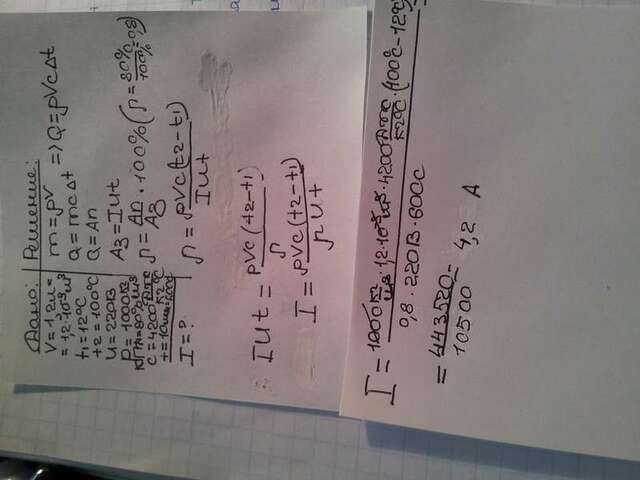 Дано:
V = 1,2л =
= 1,2·10⁻³м³
t₁ = 12°C
t₂ = 100°C
U = 220В
ρ = 1000кг/м³
КПД=80%
c = 4200 Дж/кг°C
t = 10минут
I = ?
Решение:
m = ρV
Q = mcΔt => Q = ρVcΔt
Q = Aп
Aз = IUt
η = Aп/Aз · 100% (η = 80%/100% = 0,8)
η = ρVc(t2-t1)/IUt
IUt = ρVc(t2-t1)/η
I = ρVc(t2-t1)/ηUt
I = 1000 кг/м³ · 1,2·10⁻³м³ · 4200 Дж/кг°C · (100°C-12°C)/0,8 · 220В · 600с
= 443520/10500 = 4,2 А